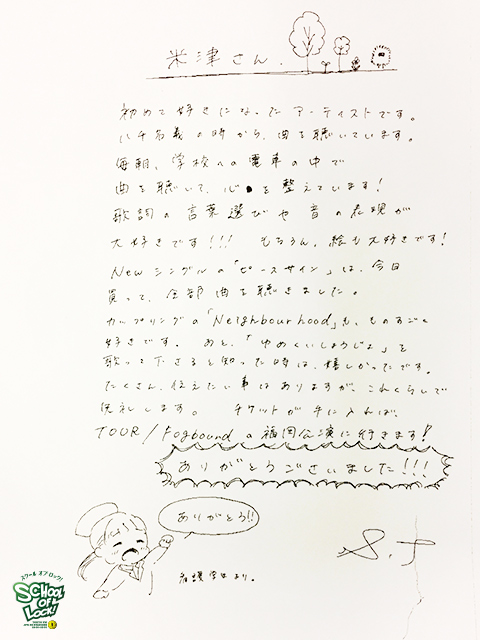 米津さん.
初めて好きになったアーティストです。
ハチ名義の時から、曲を聴いています。
毎朝、学校への電車の中で
曲を聴いて、心を整えています!
歌詞の言葉選びや音の表現が
大好きです!!! もちろん、絵も大好きです!
Newシングルの「ピースサイン」は、今日
買って、全部曲を聴きました。
カップリングの「Neighbourhood」も、ものすごく
好きです。 あと、「ゆめくいしょうじょ」を
歌って下さると知った時は、嬉しかったです。
たくさん、伝えたい事はありますが、これくらいで
失礼します。 チケットが手に入れば、
TOUR/Fogboundの福岡公演に行きます!
ありがとうございました!!!
ありがとう!!
看護学生より。
S.T
スクール オブ ロック!
SCHOOL OF LOCK!